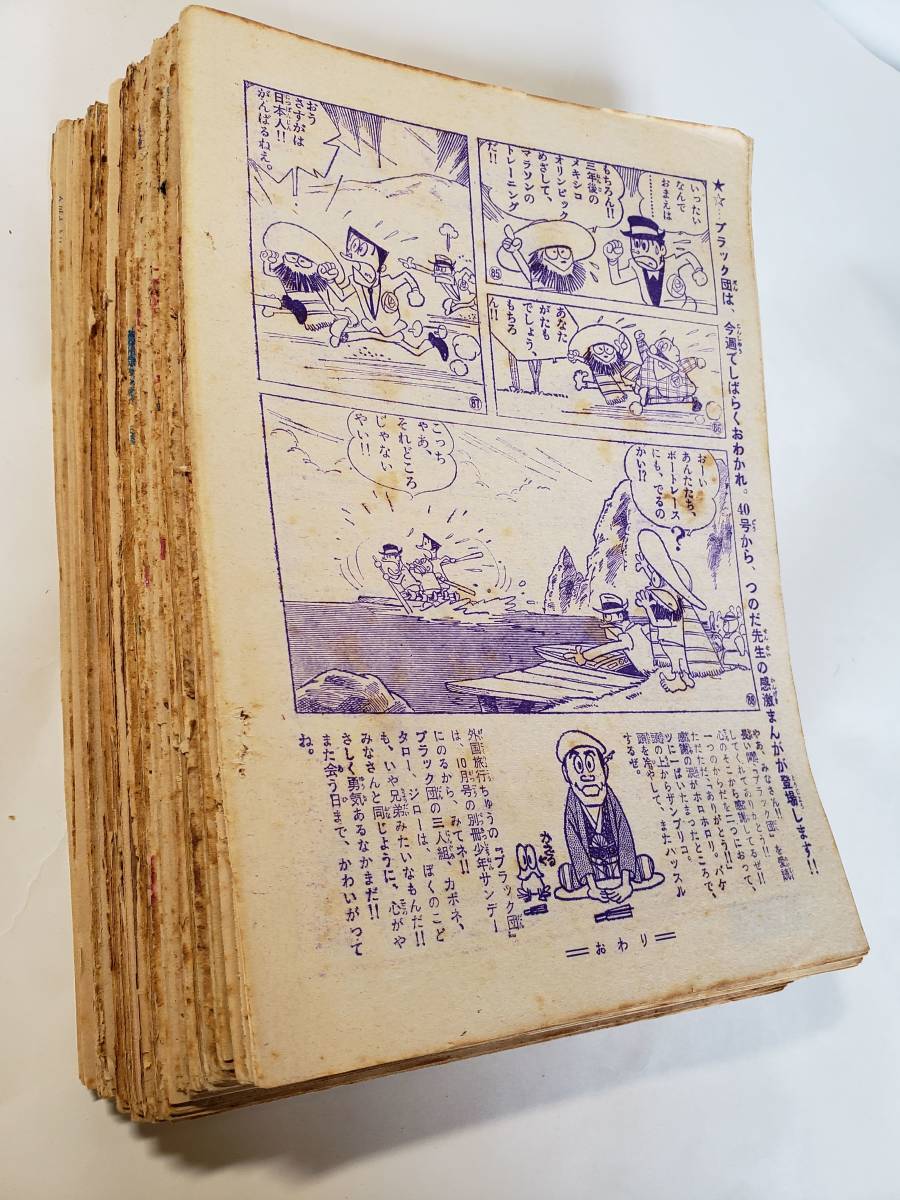 ★☆…ブラック団は、今週でしばらくおわかれ。40号から、つのだ先生の感激まんがが登場します!!
いったい
なんで
おまえは
………
もちろん!!
三年後の
メキシコ
オリンピック
めざして、
マラソンの
トレーニング
だ!!
85
あなた
がたも
でしょう、
もちろ
ん!!
86
おう
さすがは
日本人!!
がんばるねえ。
87
おーい
あんたたち、
ボートレース
にも、でるの
かい!?
?
こっち
ゃあ、
それどころ
じゃない
やい!!
88
やあ、みなさん!!『ブラック団』を愛読
してくれて
心のそこから
一つのからだを二つにおって、
ただただ、「ありがとう!!」
感謝の涙がホロホロリ。バケ
ツに一ぱいたまったところで、
頭の上からザンブリコ。
頭を冷やして、またハッスル
するぜ。
外国旅行ちゅうの『ブラック団』
は、10月号の別冊少年サンデー
にのるから、みてネ!!
ブラック団の三人組、カポネ、
タロー、ジローは、ぼくのこど
も、いや兄弟みたいなもんだ!!
みなさんと同じように、心がや
さしく勇気あるなかまだ!!
また会う日まで、かわいがって
ね。
かえる
＝おわり＝